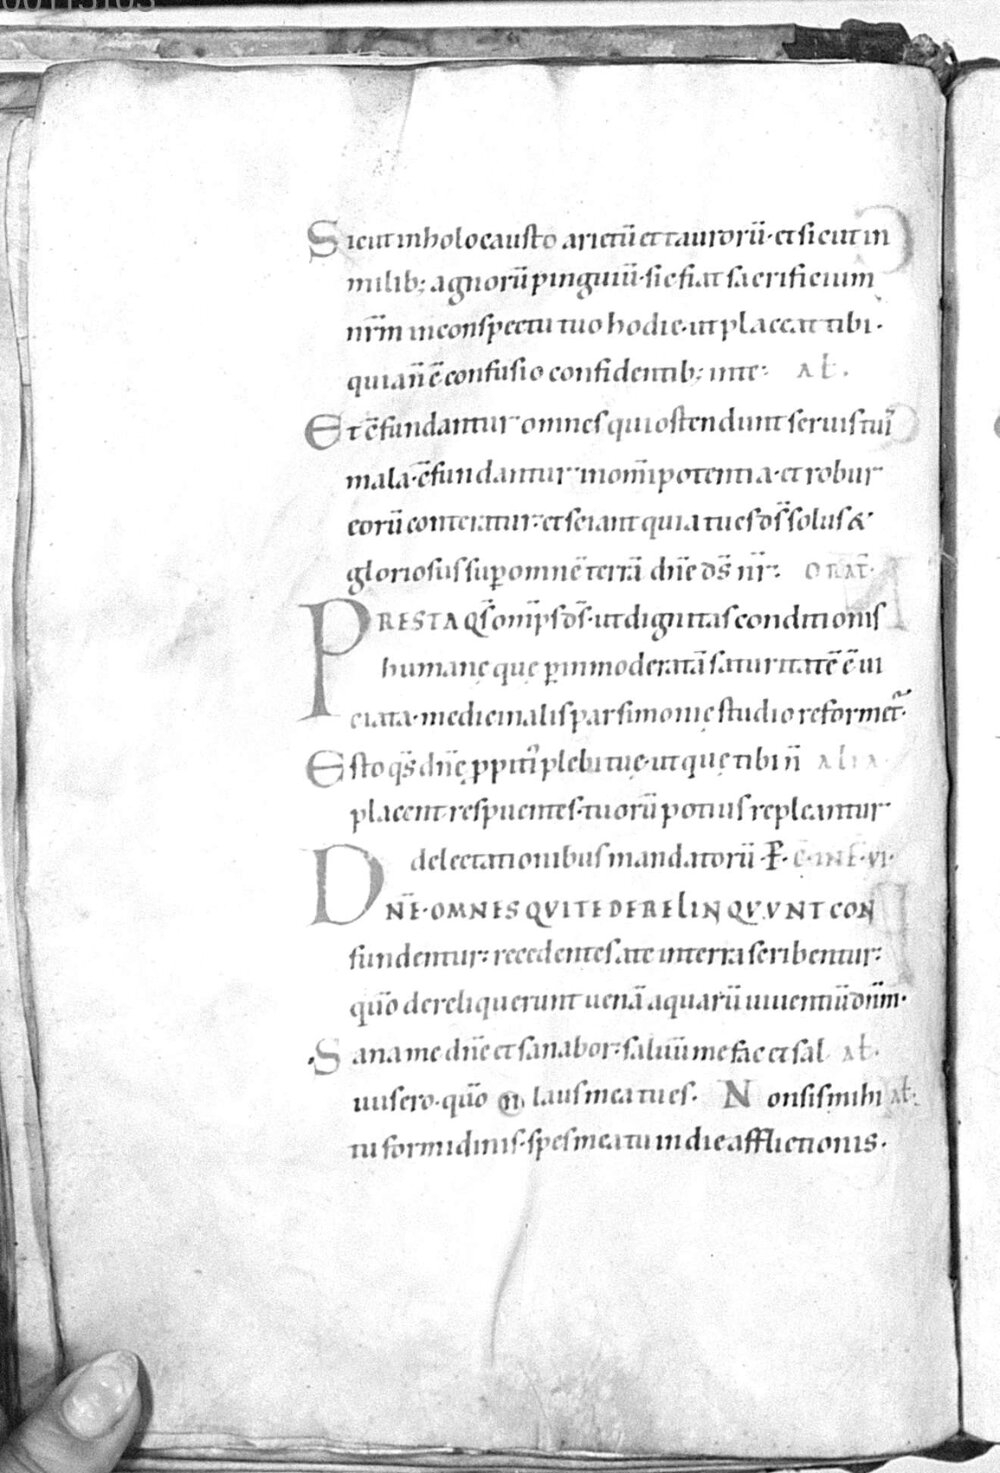 Sicut in holocausto arietū et taurorū· et sicut in
milib; agnorū pinguiū· sic fiat sacrificium
nr̄m in conspectu tuo hodie· ut placeat tibi·
quia n̄ ē confusio confidentib; in te: AL̄.
Et c̄fundantur omnes qui ostendunt seruis tuis
mala· c̄fundantur in om̄i potentia· et robur
eorū conteratur: et sciant quia tu es d̄s solus &
gloriosus sup omnē terrā dn̄e d̄s nr̄: ORAT̄·
PRESTA Q̄s om̄ps d̄s· ut dignitas conditionis
humanę quę p inmoderatā saturitatē ē ui
ciata· medicinalis parsimonię studio reformet̄·
Esto q̄s dn̄ę ppiti plebi tuę· ut quę tibi n̄ ALIA
placent respuentes· tuorū potius repleantur
delectationibus mandatorū F· C· IN F· VI·
DN̄E· OMNES QVI TE DERELINQVVNT CON
fundentur: recedentes a te in terra scribentur:
quō dereliquerunt uenā aquarū uiuentiū dn̄m·
·Sana me dn̄e et sanabor: saluū me fac et sal AL̄·
uus ero· quō laus mea tu es. Non sis mihi AL̄·
tu formidinis· spes mea tu in die afflictionis·